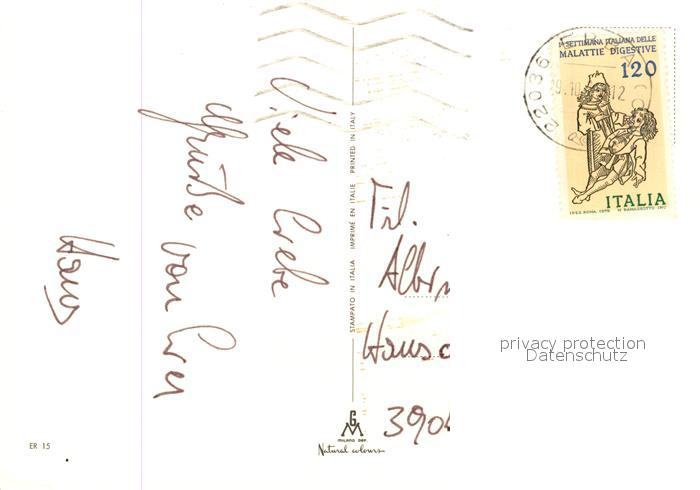 Viele liebe
Grüße von
Hans
Frl.
3904
STAMPATO IN ITALIA IMPRIMÉ EN ITALIE PRINTED IN ITALY
GM
MILANO DEP.
Natural colours
ER 15
1ª SETTIMANA ITALIANA DELLE
MALATTIE DIGESTIVE
120
ITALIA
22036
29.10
12
privacy protection
Datenschutz